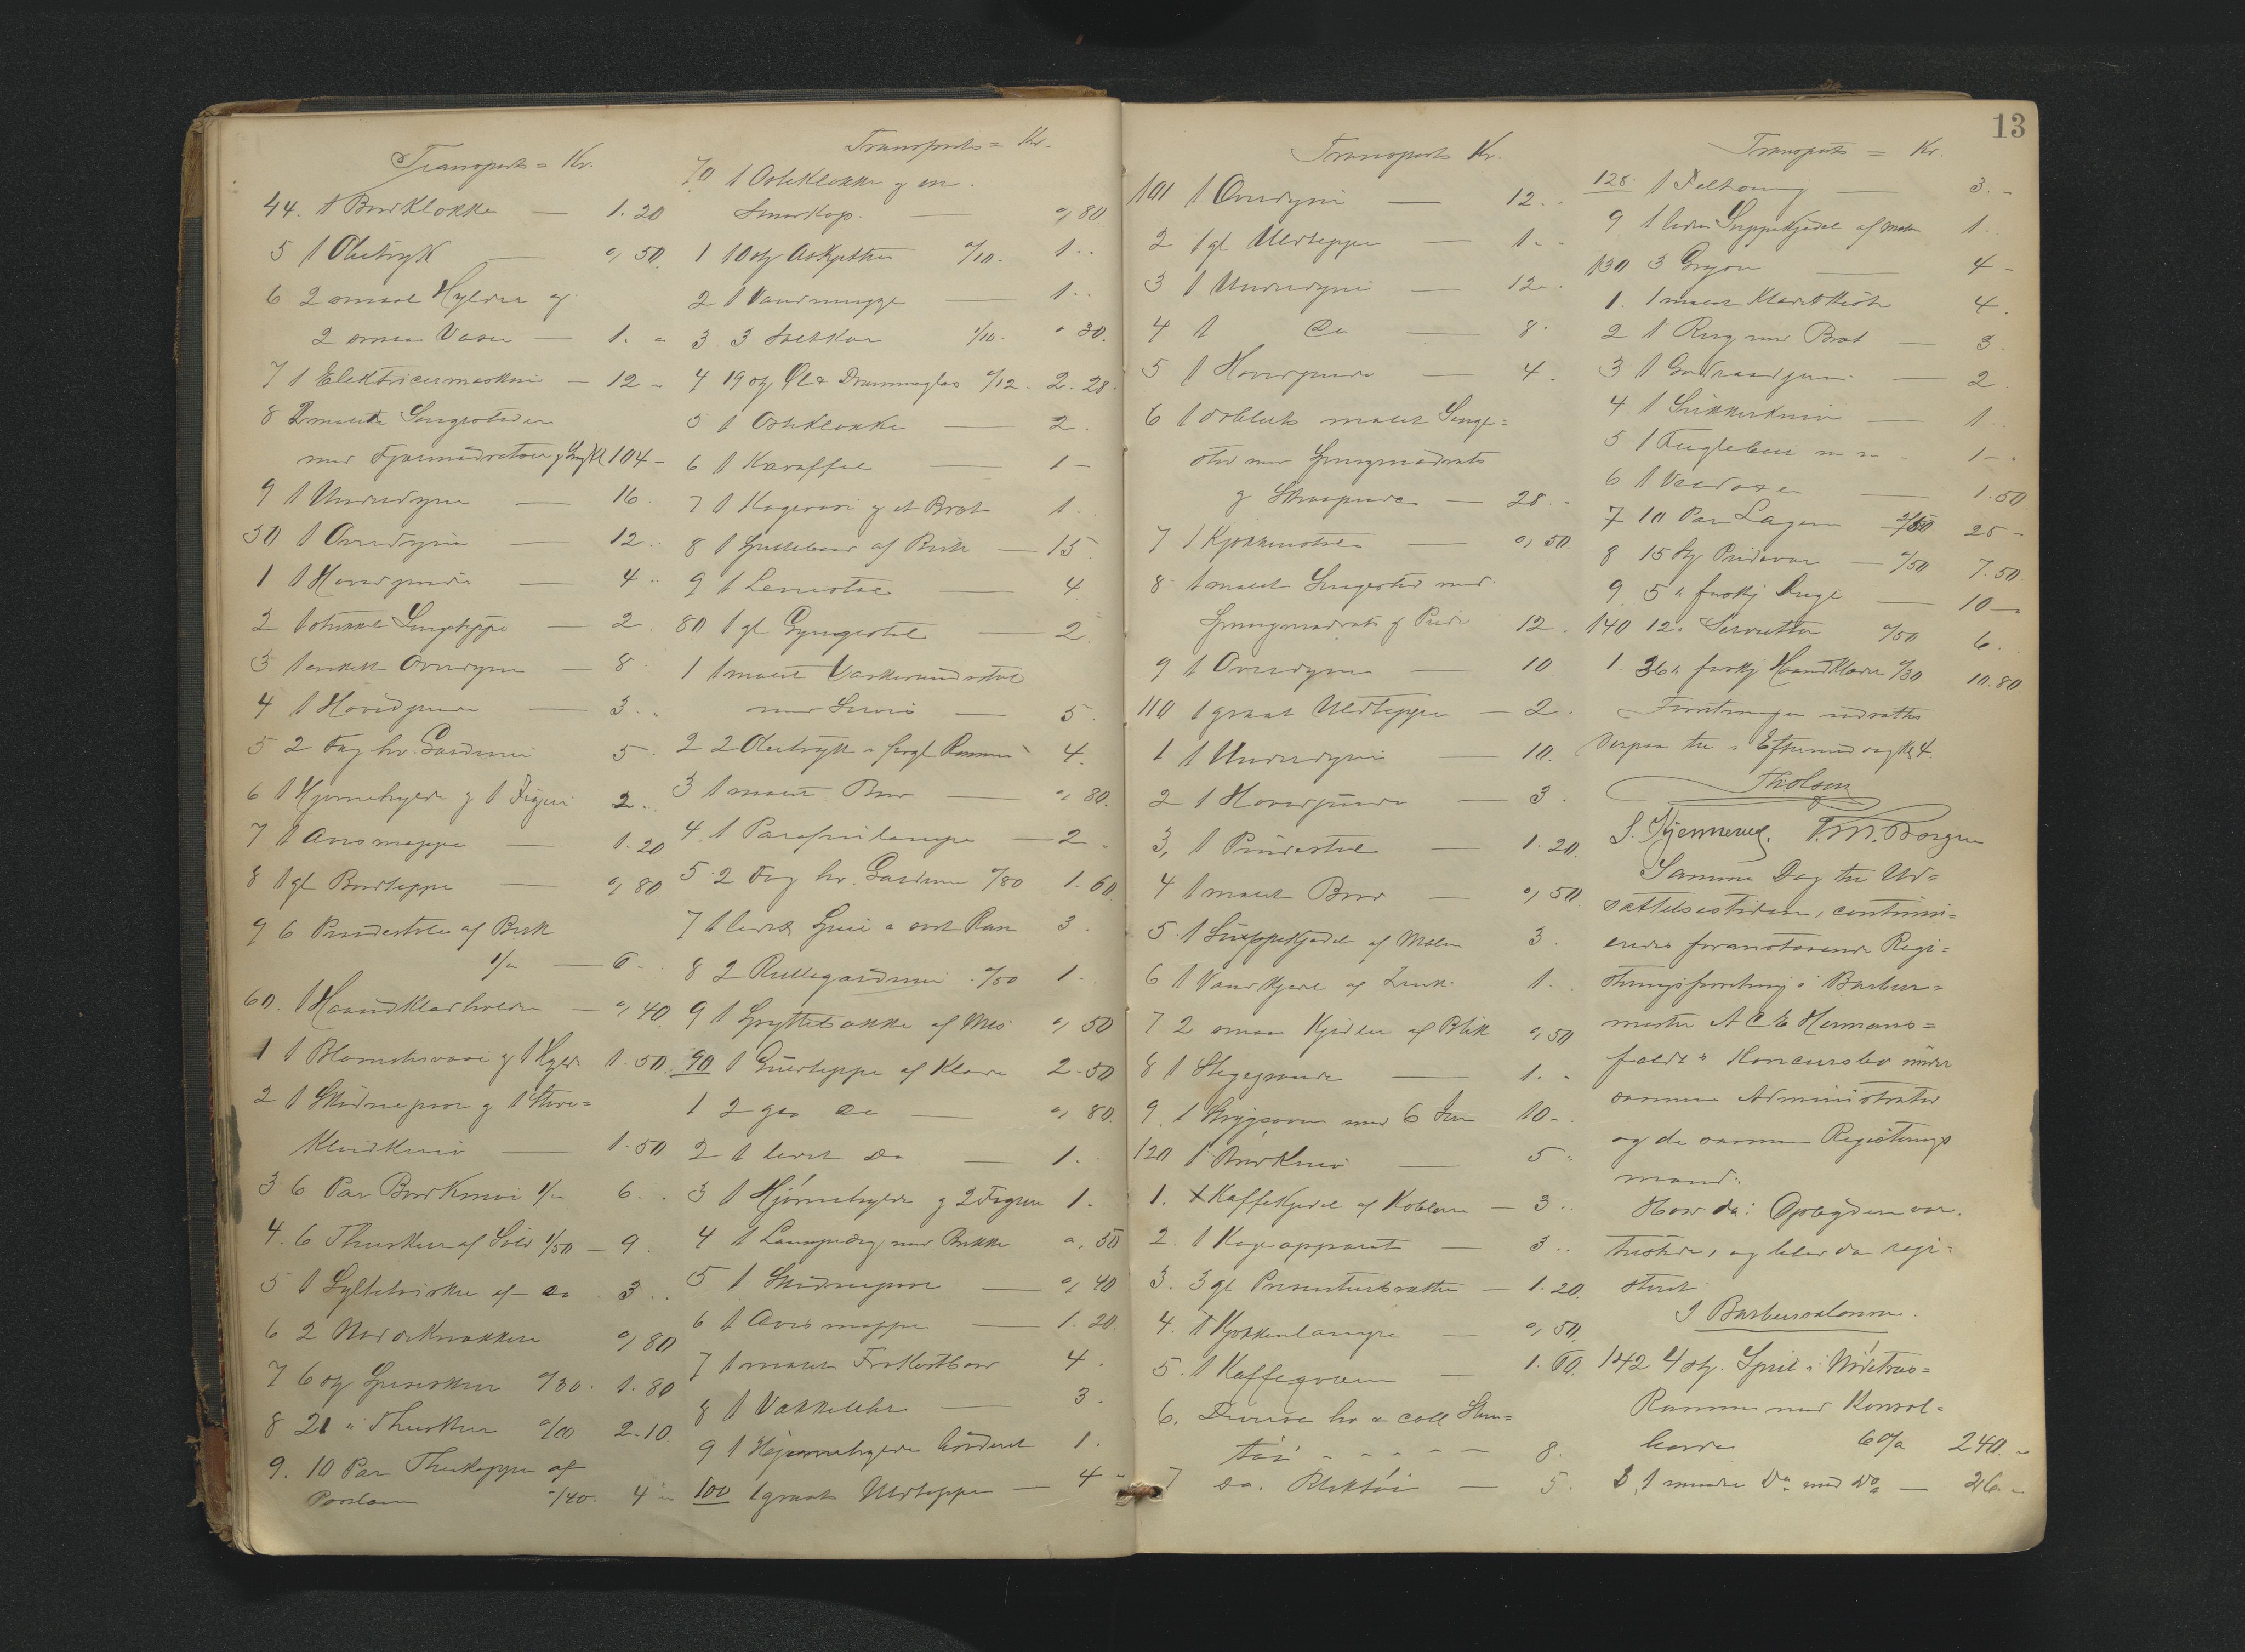 Transport = Kr.
44. 1 BordKlokke — 1. 20
5 1 Olietryk — 0, 50
6 2 smaa Hylder og
2 smaa Vaser — 1. "
7 1 Elektricermaskine — 12 "
8 2 malede Sengesteder
med Fjærmadratser 104 –
9 1 Underdyne — 16
50 1 Overdyne — 12.
1 1 Hovedpude — 4 "
2 1 strikket Sengteppe — 2.
3 1 enkelt Overdyne — 8
4 1 Hovedpude — 3 "
5 2 Fag hv. Gardiner 5
6 1 Hjørnehylde og 1 Figur 2 "
7 1 Avismappe — 1. 20
8 1 gl Bordteppe — 0, 80
9 6 Pindestole af Birk
1/" — 6 .
60. 1 Haandklædholder — 0, 40
1 1 Blomstervase og 1 Hylde 1. 50
2 1 og 1
— 1. 50
3 6 Par BordKnive 1/" 6 . .
4. 6 Theskeer af Sølv 1/50 – 9
5 1 Sylteteiske af Do 3 . .
6 2 Nøddeknækkere 0, 80
7 6 stk Spiseskeer 0/30. 1. 80
8 21 " Theskeer 0/10 2-10
9. 10 Par Thekopper af
Porslæn 0/40. 4 "
Transport = Kr.
70 1 OsteKlokke og en
Smørkop. — 0, 80
1 10 stk Askjetter 0/10. 1 . .
2 1 Vandmugge — 1 . .
3. 3 SaltKar 0/10. " 30.
4 19 stk Øl & Dramme glas 0/12. 2. 28.
5 1 OsteKlokke — 2.
6 1 Karaffel — 1 –
7 1 Kagevase og et Bræt 1 . .
8 1 Spillebord af Birk — 15.
9 1 Lenestol — 4
80 1 gl Gyngestol — 2
1 1 malet Vaskevandsstol
med Servis — 5
2 2 Olietryk i forgl Rammer 4.
3 1 malet Bord — 0, 80.
4. 1 Parafinlampe — 2 .
5 2 Fag hv. Gardiner 0/80 1. 60
7 1 lidet Speil i sort Ram 3 .
8 2 Rullegardiner 0/50 1 . .
9 1 Spyttebakke af Mes 0, 50
90 1 Gulvteppe af Klæde 2-50
1 2 gra Do — 0, 80.
2 1 lidet Do — 1.
3 1 Hjørnehylde og 2 Figurer 1.
4 1 med Bakke 0, 50
5 1 — 0, 40
6 1 Avismappe — 1. 20.
7 1 malet FroKostbord 4 .
8 1 Vækkeuhr — 3.
9 1 Hjørnehylde 1.
100 1 graat Uldteppe — 4 –
13
Transport Kr.
101 1 Overdyne — 12 . .
2 1 gl Uldteppe — 1 . .
3 1 Underdyne — 12 .
4 1 Do — 8.
5 1 Hovedpude — 4 .
6 1 dobbelt malet Senge=
sted med Springmadrats
og Skraapude — 28 . .
7 1 Kjøkkenstol — 0, 50.
8 1 malet Sengested med
Springmadrats og Pude 12 .
9 1 Overdyne — 10
110 1 graat Uldteppe — 2 .
1 1 Underdyne — 10.
2 1 Hovedpude — 3 .
3, 1 Pindestol — 1. 20.
4 1 malet Bord — 0, 50
5 1 Suppekjedel af Malm 3.
6 1 Vandkjedel af Zink. 1 . .
7 2 smaa Kjedler af Blik 0, 50
8 1 Stegepande — 1 . .
9. 1 Strygeovn med 6 Jern 10 - .
120 1 BrødKniv — 5 .
1. 1 Kaffekjedel af Kobber — 3 . .
2. 1 Kogeapparat — 3 . .
3. 3 gl Presenterbrætter — 1. 20.
4. 1 Kjøkkenlampe — 0, 50.
5. 1 Kaffeqværn — 1. 60.
6. Diverse hv & coll Sten=
tøi - - - - 8.
7 Do. Bliktøi — 5.
Transport = Kr.
128. 1 — 3. –
9 1 liden Suppekjedel af Malm 1.
130 3 Gryder — 4 –
1. 1 malet Klædeskab 4 .
2 1 med Bræt — 3.
3 1 — 2.
4. 1 Sukkerkniv — 1 .
5 1 Fuglebuur 1 – .
6 1 — 1. 50
7 10 Par Lagen 2/50 25 –
8 15 Stk Pudevar — 0/50 7. 50.
9. 5 " forskj Duge — 10 –
140 12 " Servietter 0/50 6 .
1. 36 " forskj Haandklæder 0/30 10. 80.
Forretningen udsattes
derpaa til i Eftermiddag Kl 4.
Th. Olsen
S. Kjennerud. T. M. Borgen
Samme Dag til Ud=
sættelsestiden, continu=
eredes foranstaaende Regi=
streringsforretning i Barber=
mester A C E Hermans=
fældts Konkursbo under
samme Administrator
og de samme Registrerings
mænd.
Hos da: Opbyderen var
tilstede, og blev da regi=
streret
I Barbersalonen.
142 4 stk. Speil i Nøddetræs=
Rammer med Konsol=
borde 60/" 240. "
3 1 mindre Do med Do — 26. "